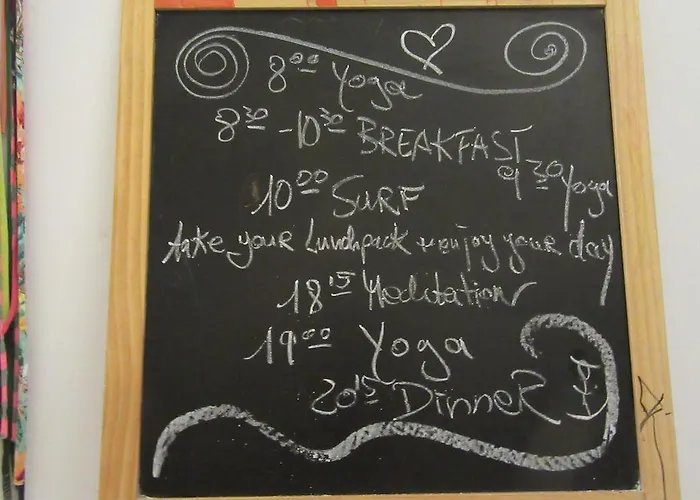 8⁰⁰ Yoga
8³⁰ - 10³⁰ BREAKFAST
9³⁰ Yoga
10⁰⁰ SURF
take your Lunchpack + enjoy your day
18¹⁵ Meditation
19⁰⁰ Yoga
20¹⁵ Dinner